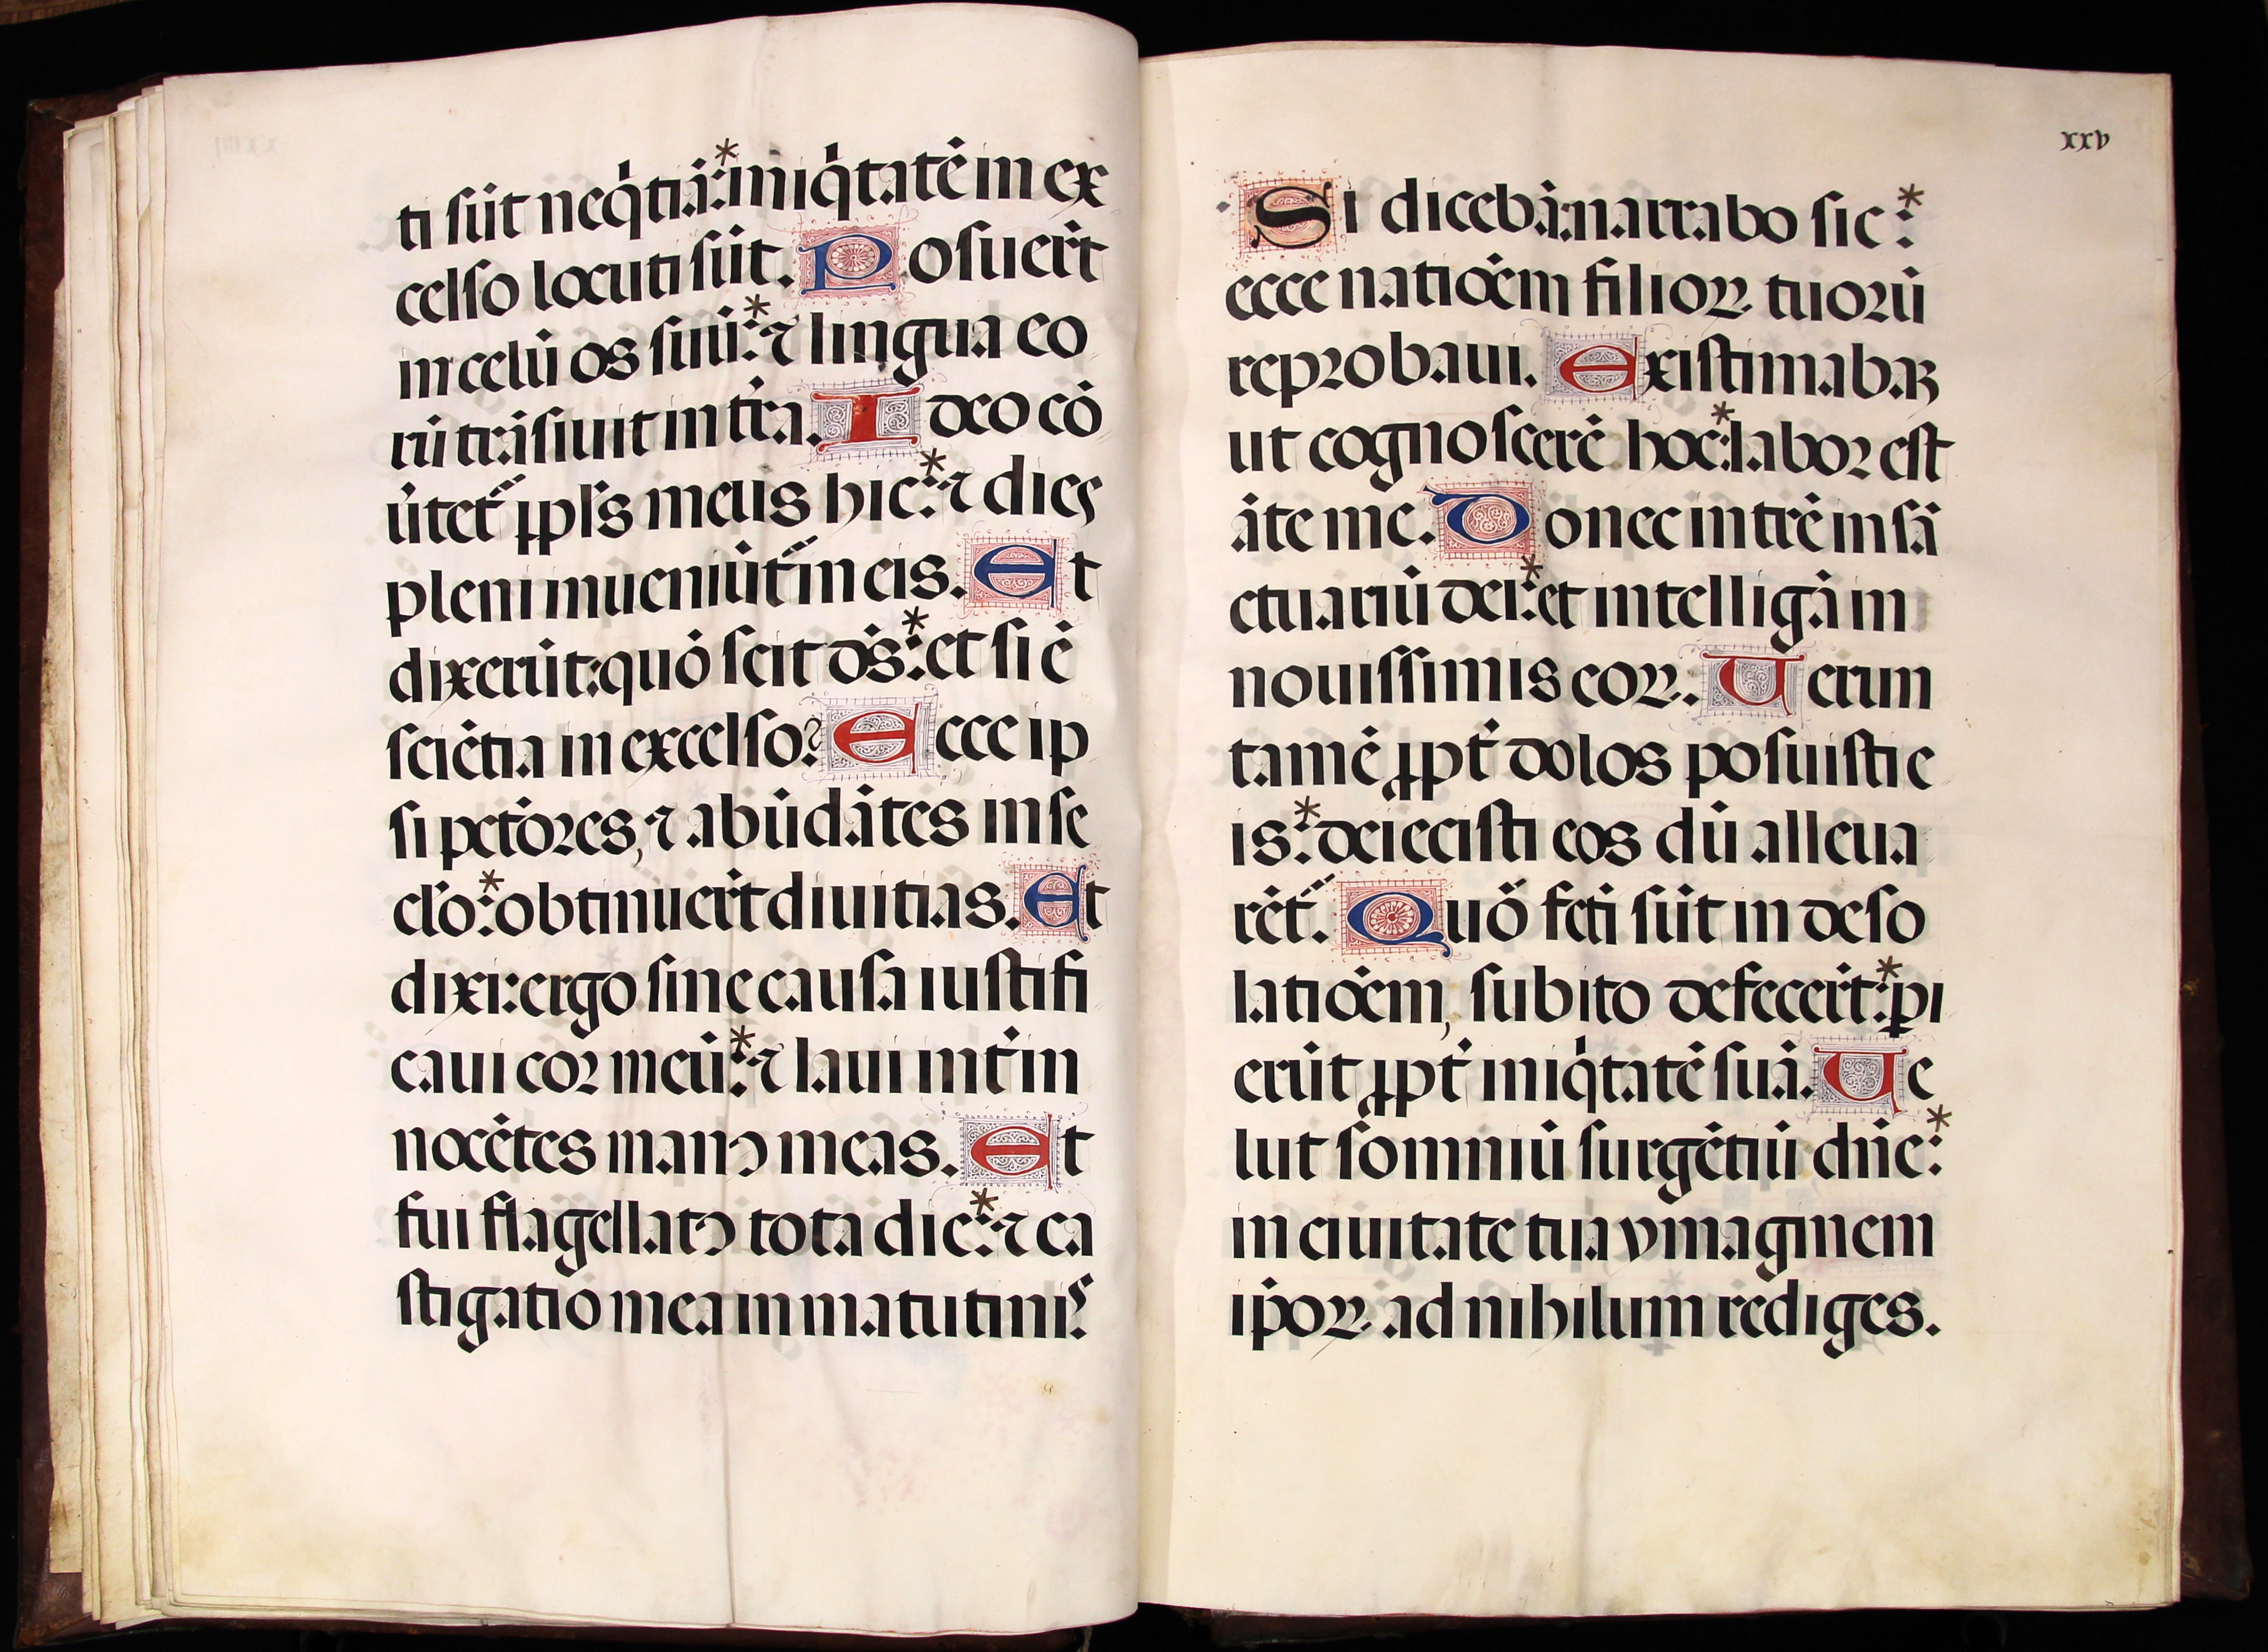 ti sūt neq̇tiā:* iniq̇tatē in ex
celso locuti sūt. Posuer̄t
in celū os suū:* ⁊ lingua eo
rū trāsiuit in t̄ra. Ideo cō
ūtet᷑ pp̄ls meus hic:* ⁊ dies
pleni inueniūt᷑ in eis. Et
dixerūt: quō scit dˢ:* et si ē
sciētia in excelso? Ecce ip
si pct̄ores, ⁊ abūdātes in se
cl̄o:* obtinuer̄t diuitias. Et
dixi: ergo sine causa iustifi
caui cor meū:* ⁊ laui int̄ in
nocētes manꝰ meas. Et
fui flagellatꝰ tota die:* ⁊ ca
stigatio mea in matutinis.
xxv
Si dicebā: narrabo sic:*
ecce natiōem filioꝝ tuorū
reprobaui. Existimabaꝫ
ut cognoscerē hoc:* labor est
āte me. Donec intrē in sā
ctuariū dei:* et intelligā in
nouissimis eoꝝ. Uerun
tamē ꝓpt̄ dolos posuisti e
is:* deiecisti eos dū alleua
rēt᷑. Quō fcti sūt in deso
latiōem, subito defecer̄t:* ꝑi
erūt ꝓpt̄ iniq̇tatē suā. Ue
lut somniū surgētiū dn̄e:*
in ciuitate tua ymaginem
ip̄oꝝ ad nihilum rediges.